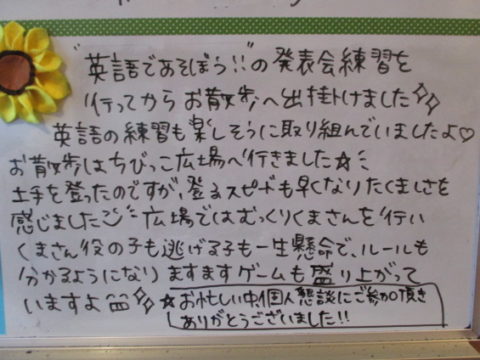 "英語であそぼう!!"の発表会練習を
行ってからお散歩へ出掛けました✧✧
英語の練習も楽しそうに取り組んでいましたよ♡
お散歩はちびっこ広場へ行きました☆ミ
土手を登ったのですが、登るスピードも早くなりたくましさを
感じました 広場ではむっくりくまさんを行い
くまさん役の子も逃げる子も一生懸命で、ルールも
分かるようになりますますゲームも盛り上がって
いますよ✧✧
★お忙しい中、個人懇談にご参加頂き
ありがとうございました!!